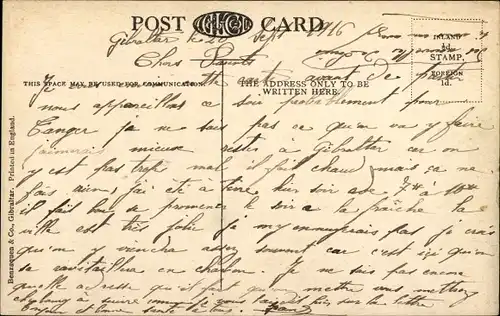 POST CARD
Gibraltar le 20 Sept 1916
INLAND
½d.
STAMP.
FOREIGN
1d.
Chers
THIS SPACE MAY BE USED FOR COMMUNICATION.
THE ADDRESS ONLY TO BE
WRITTEN HERE.
Je avant de
nous appareillons ce soir probablement pour
Tanger je ne sais pas ce qu'on va y faire
j'aimerais mieux rester à Gibraltar car on
y est pas trop mal il fait chaud mais ça ne
fais rien, j'ai été à terre hier soir de 7h à 10h
il fait bon se promener le soir à la fraîche la
ville est très jolie je m'y ennuyerais pas je crois
qu'on y viendra assez souvent car c'est ici qu'on
se ravitaillera en charbon. Je ne sais pas encore
quelle adresse qu'il faut que vous mettiez
à suivre comme je vous sur la lettre
Bonjour et bonne santé à tous.
Benzaquen & Co., Gibraltar. Printed in England.